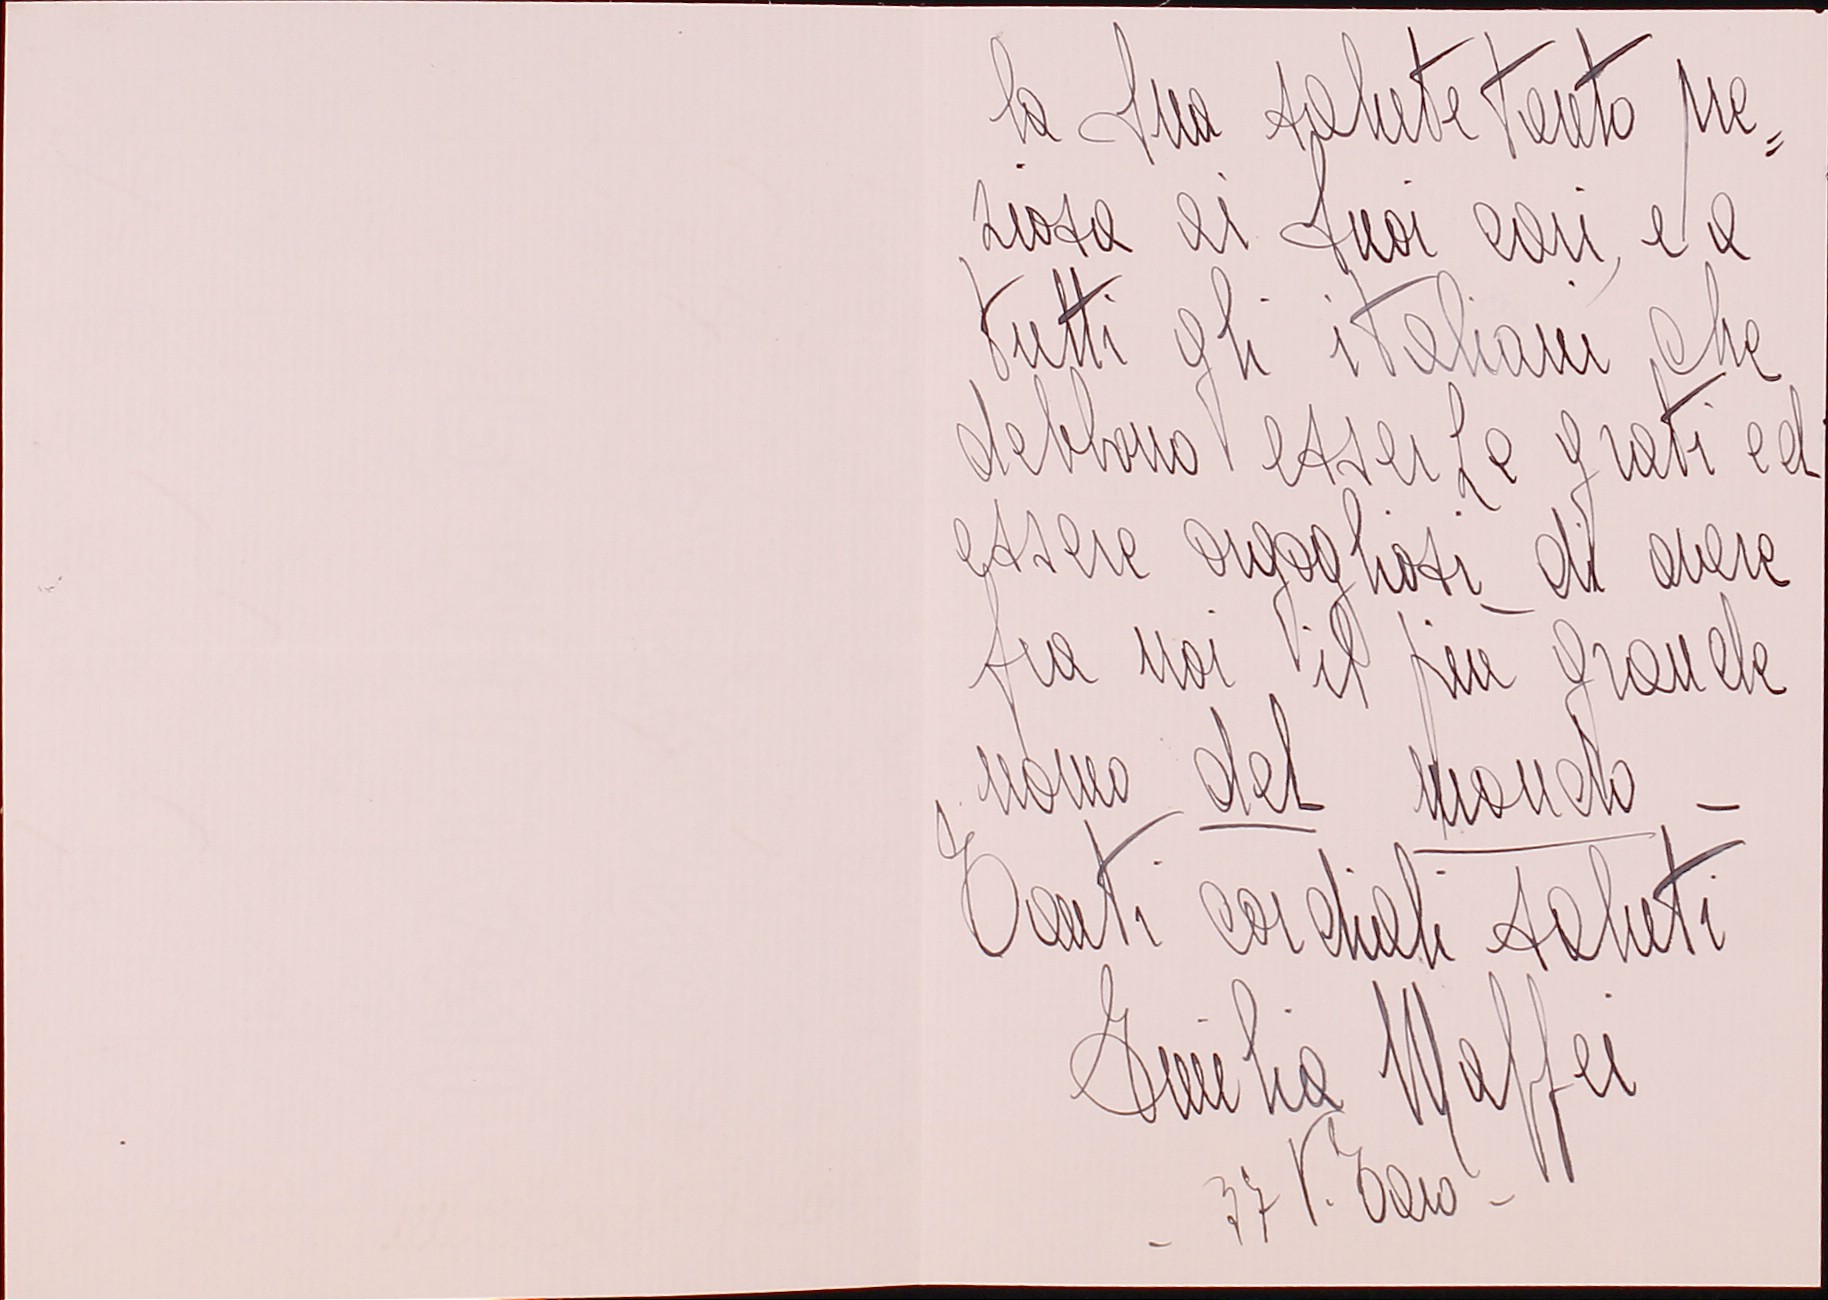 la Sua salute tanto pre=
ziosa ai Suoi cari, e a
tutti gli italiani che
debbono esserLe grati ed
essere orgogliosi di avere
fra noi il più grande
uomo del mondo -
Tanti cordiali saluti
Emilia Maffei
- 37 V. Taro -